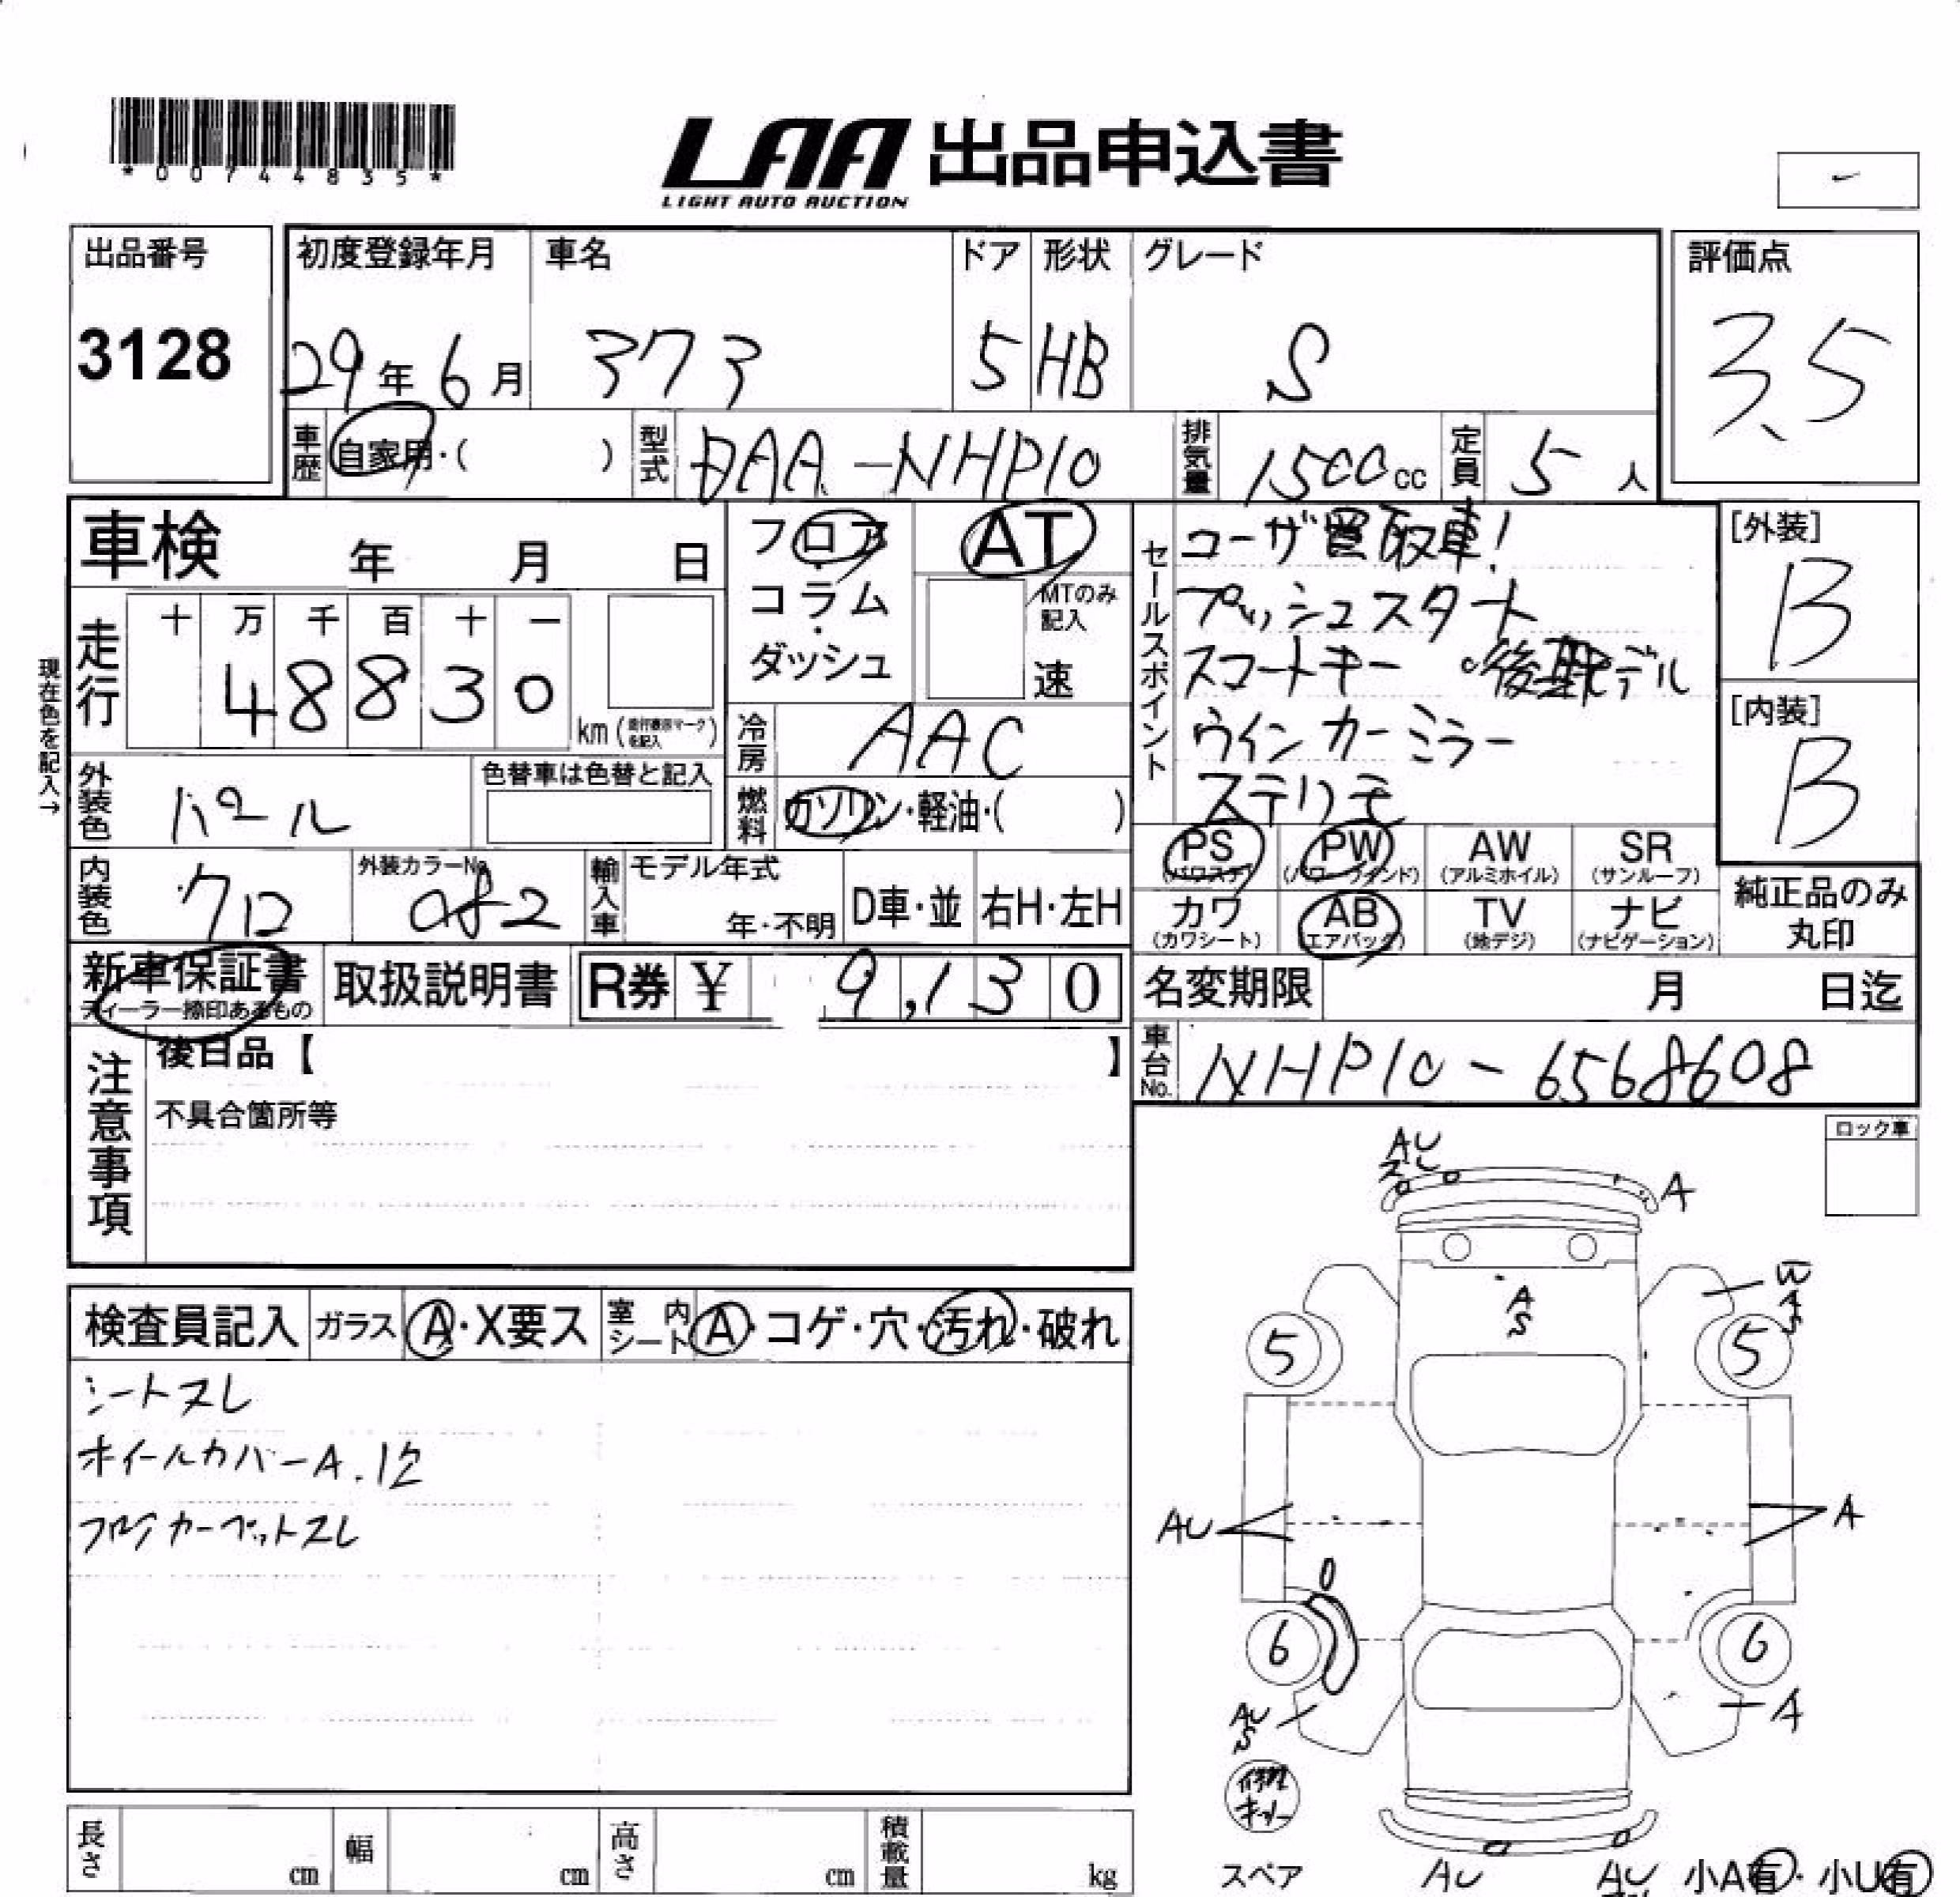 *00744835*
LAA 出品申込書
LIGHT AUTO AUCTION
出品番号
3128
初度登録年月
29年6月
車名
アクア
ドア
5
形状
HB
グレード
S
評価点
3.5
車歴
自家用・( )
型式
DAA-NHP10
排気量
1500cc
定員
5人
車検 年 月 日
フロア・コラム・ダッシュ
AT
MTのみ記入
速
セールスポイント
ユーザ買取車!
プッシュスタート
スマートキー 後期モデル
ウインカーミラー
ステリモ
[外装]
B
[内装]
B
現在色を記入→
走行
十 万 千 百 十 一
48830
km(走行表示マークを記入)
冷房
AAC
外装色
パール
色替車は色替と記入
燃料
ガソリン・軽油・( )
内装色
クロ
外装カラーNo.
輸入車
モデル年式
年・不明
D車・並
右H・左H
PS
(パワステ)
PW
(パワーウインド)
AW
(アルミホイル)
SR
(サンルーフ)
カワ
(カワシート)
AB
(エアバック)
TV
(地デジ)
ナビ
(ナビゲーション)
純正品のみ
丸印
新車保証書
ディーラー捺印あるもの
取扱説明書
R券 ¥ 9,130
名変期限 月 日迄
車台No.
NHP10-6568608
注意事項
後日品【 】
不具合箇所等
ロック車
検査員記入
ガラス
A・X要ス
室内シート
A・コゲ・穴・汚れ・破れ
シートスレ
ホイールカバーA.
フロアカーペットスレ
AU
スレ
A
A
S
W
A
S
5
5
AU
A
6
6
AU
S
A
スペア
AU
AU
小A有・小U有
長さ cm
幅 cm
高さ cm
積載量 kg